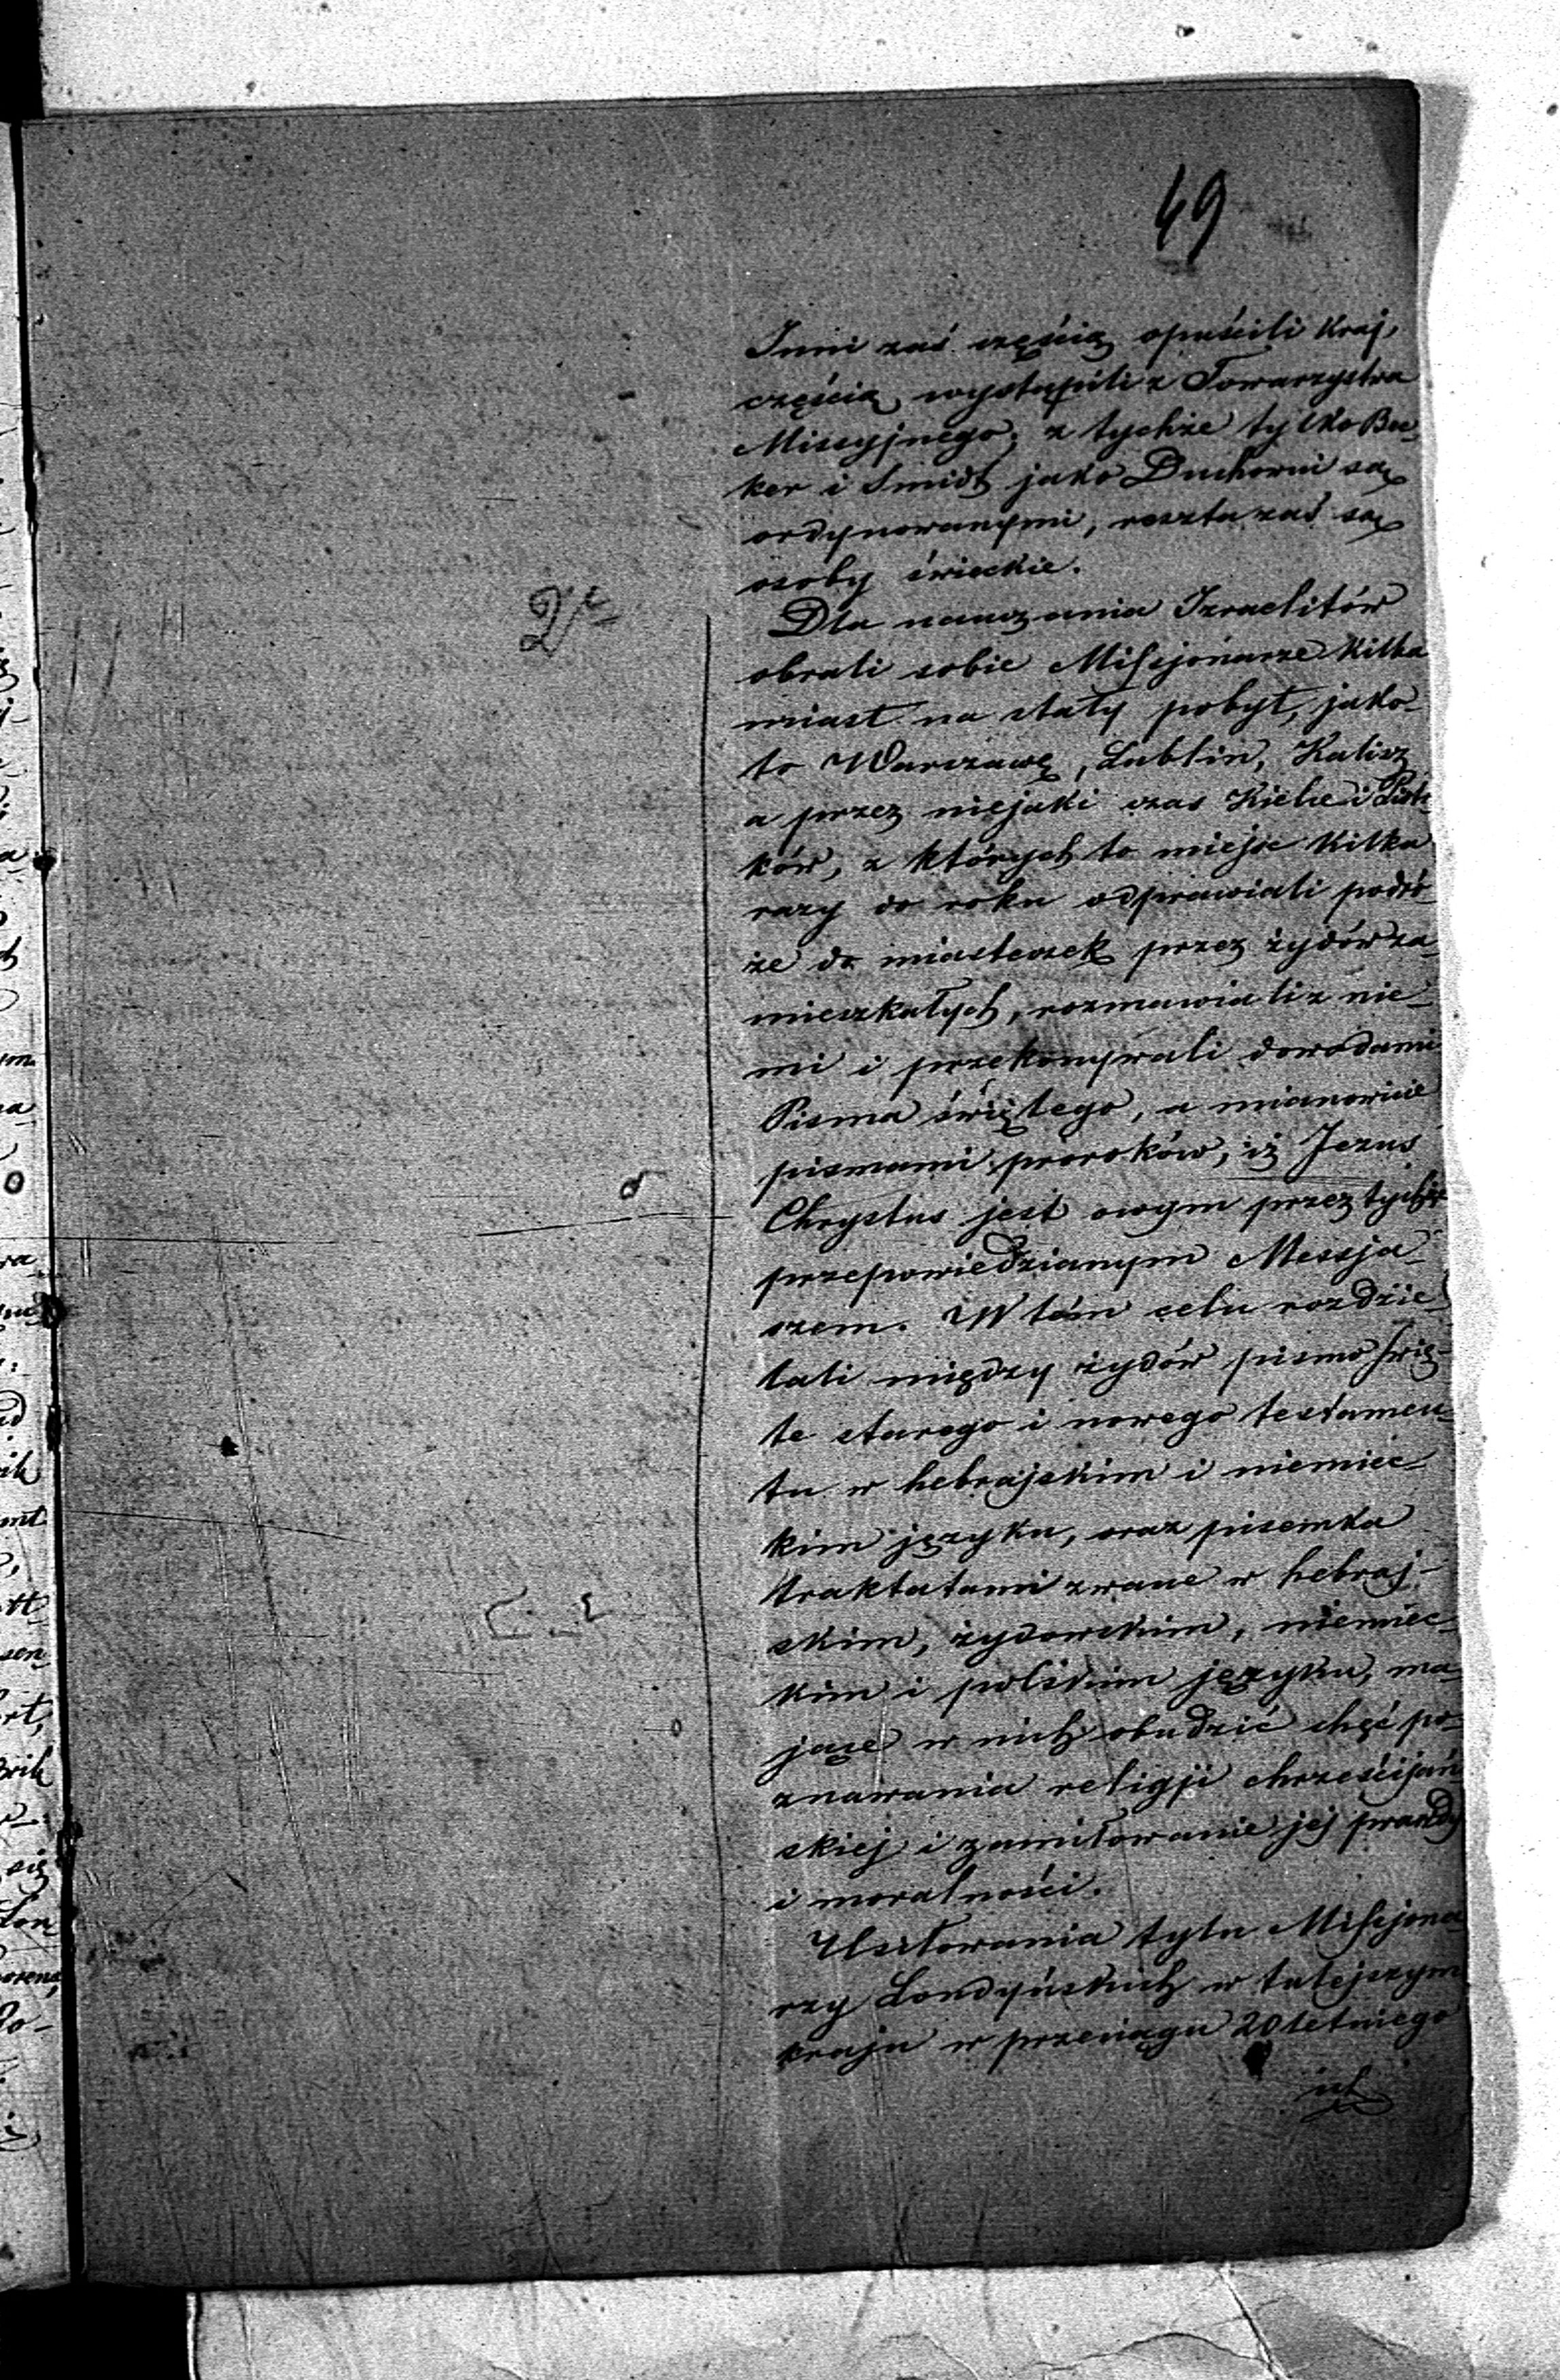 49
Inni zaś częścią opuścili Kraj,
częścią wystąpili z Towarzystwa
Missyjnego; z tychże tylko Bec-
ker i Smidt jako Duchowni są
ordynowanymi, reszta zaś są
osoby świeckie.
2e
Dla nauczania Izraelitów
obrali sobie Missjonarze kilka
miast na stały pobyt, jako-
to Warszawę, Lublin, Kalisz
a przez niejaki czas Kielce i Piotr-
ków, z których to miejsc kilka
razy do roku odprawiali podró-
że do miasteczek przez żydów za-
mieszkałych, rozmawiali z nie-
mi i przekonywali dowodami
Pisma świętego, a mianowicie
pismami proroków, iż Jezus
Chrystus jest owym przez tychże
przepowiedzianym Messja-
szem. W tém celu rozdzie-
lali między żydów pismo świę-
te starego i nowego testamen-
tu w hebrajskim i niemiec-
kim języku, oraz pisemka
traktatami zwane w hebraj-
skim, żydowskim, niemiec-
kim i polskim języku, ma-
jące w nich obudzić chęć po-
znawania religji chrześcijań-
skiej i zamiłowanie jej prawdy
i moralności.
Usiłowania tylu Missjona-
rzy Londyńskich w tutejszym
kraju w przeciągu 20 letniego
ich